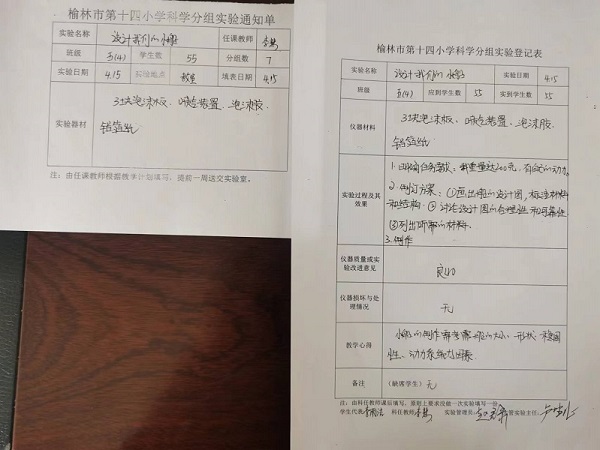 榆林市第十四小学科学分组实验通知单
实验名称 设计我们的小船 任课教师
班级 五(4) 学生数 55 分组数 7
实验日期 4.15 实验地点 教室 填表日期 4.15
实验器材 3块泡沫板、喷气装置、泡沫胶、
铝箔纸
注：由任课教师根据教学计划填写，提前一周送交实验室。
榆林市第十四小学科学分组实验登记表
实验名称 设计我们的小船 实验日期 4.15
班级 五(4) 应到学生数 55 实到学生数 55
仪器材料 3块泡沫板、喷气装置、泡沫胶、
铝箔纸
实验过程及其效果
1.明确任务需求：载重量达200克，有自己的动力。
2.制订方案：①画出船的设计图，标注材料
和结构。②讨论设计图的合理性和可靠性
③列出所需的材料。
3.制作
仪器质量或实验改进意见 良好
仪器损坏与处理情况 无
教学心得 小船的制作需考虑船的大小、形状、稳固
性、动力系统等因素
备注 （缺席学生）无
注：由科任教师课后填写，原则上要求没做一次实验填写一份
学生代表 科任教师 实验管理员 管实验主任